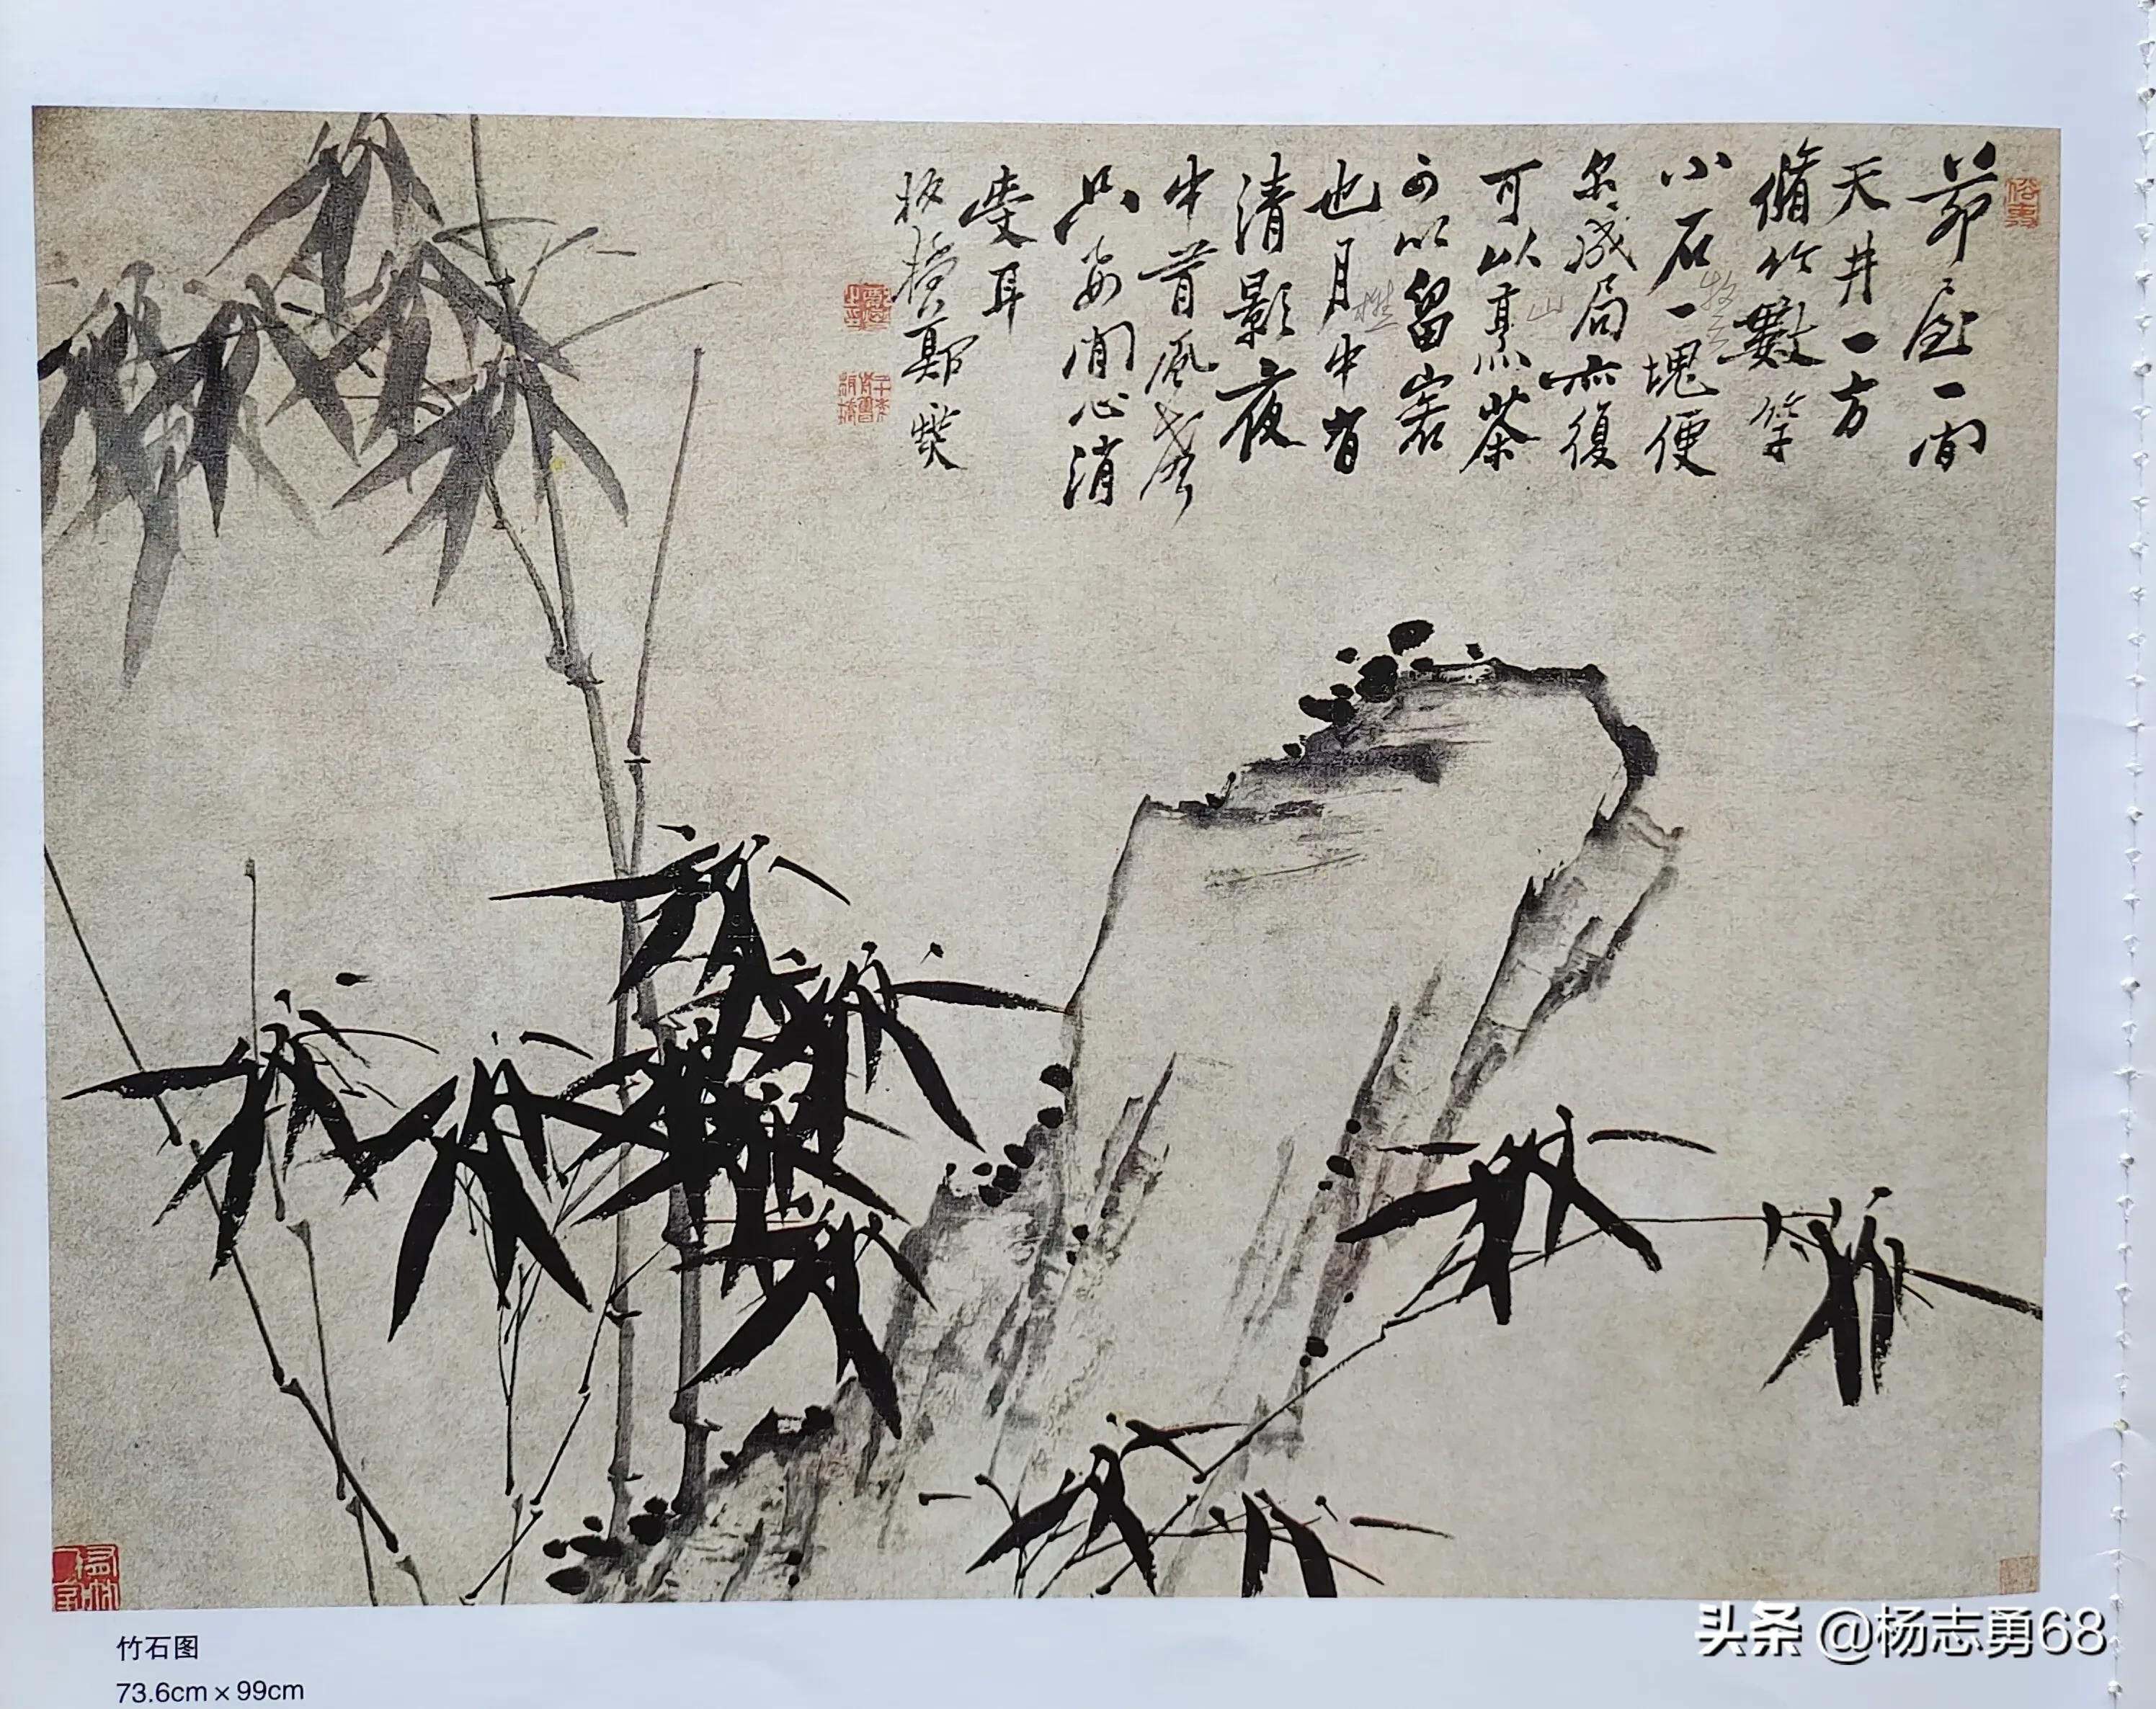 茆屋一間
天井一方
脩竹數竿
小石一塊便
尔成局亦復
可以烹茶
可以留客
也月中有
清影夜
中有風聲
只要閒心消
受耳
板橋鄭燮
俗吏
竹石图
73.6cm×99cm
头条 @杨志勇68